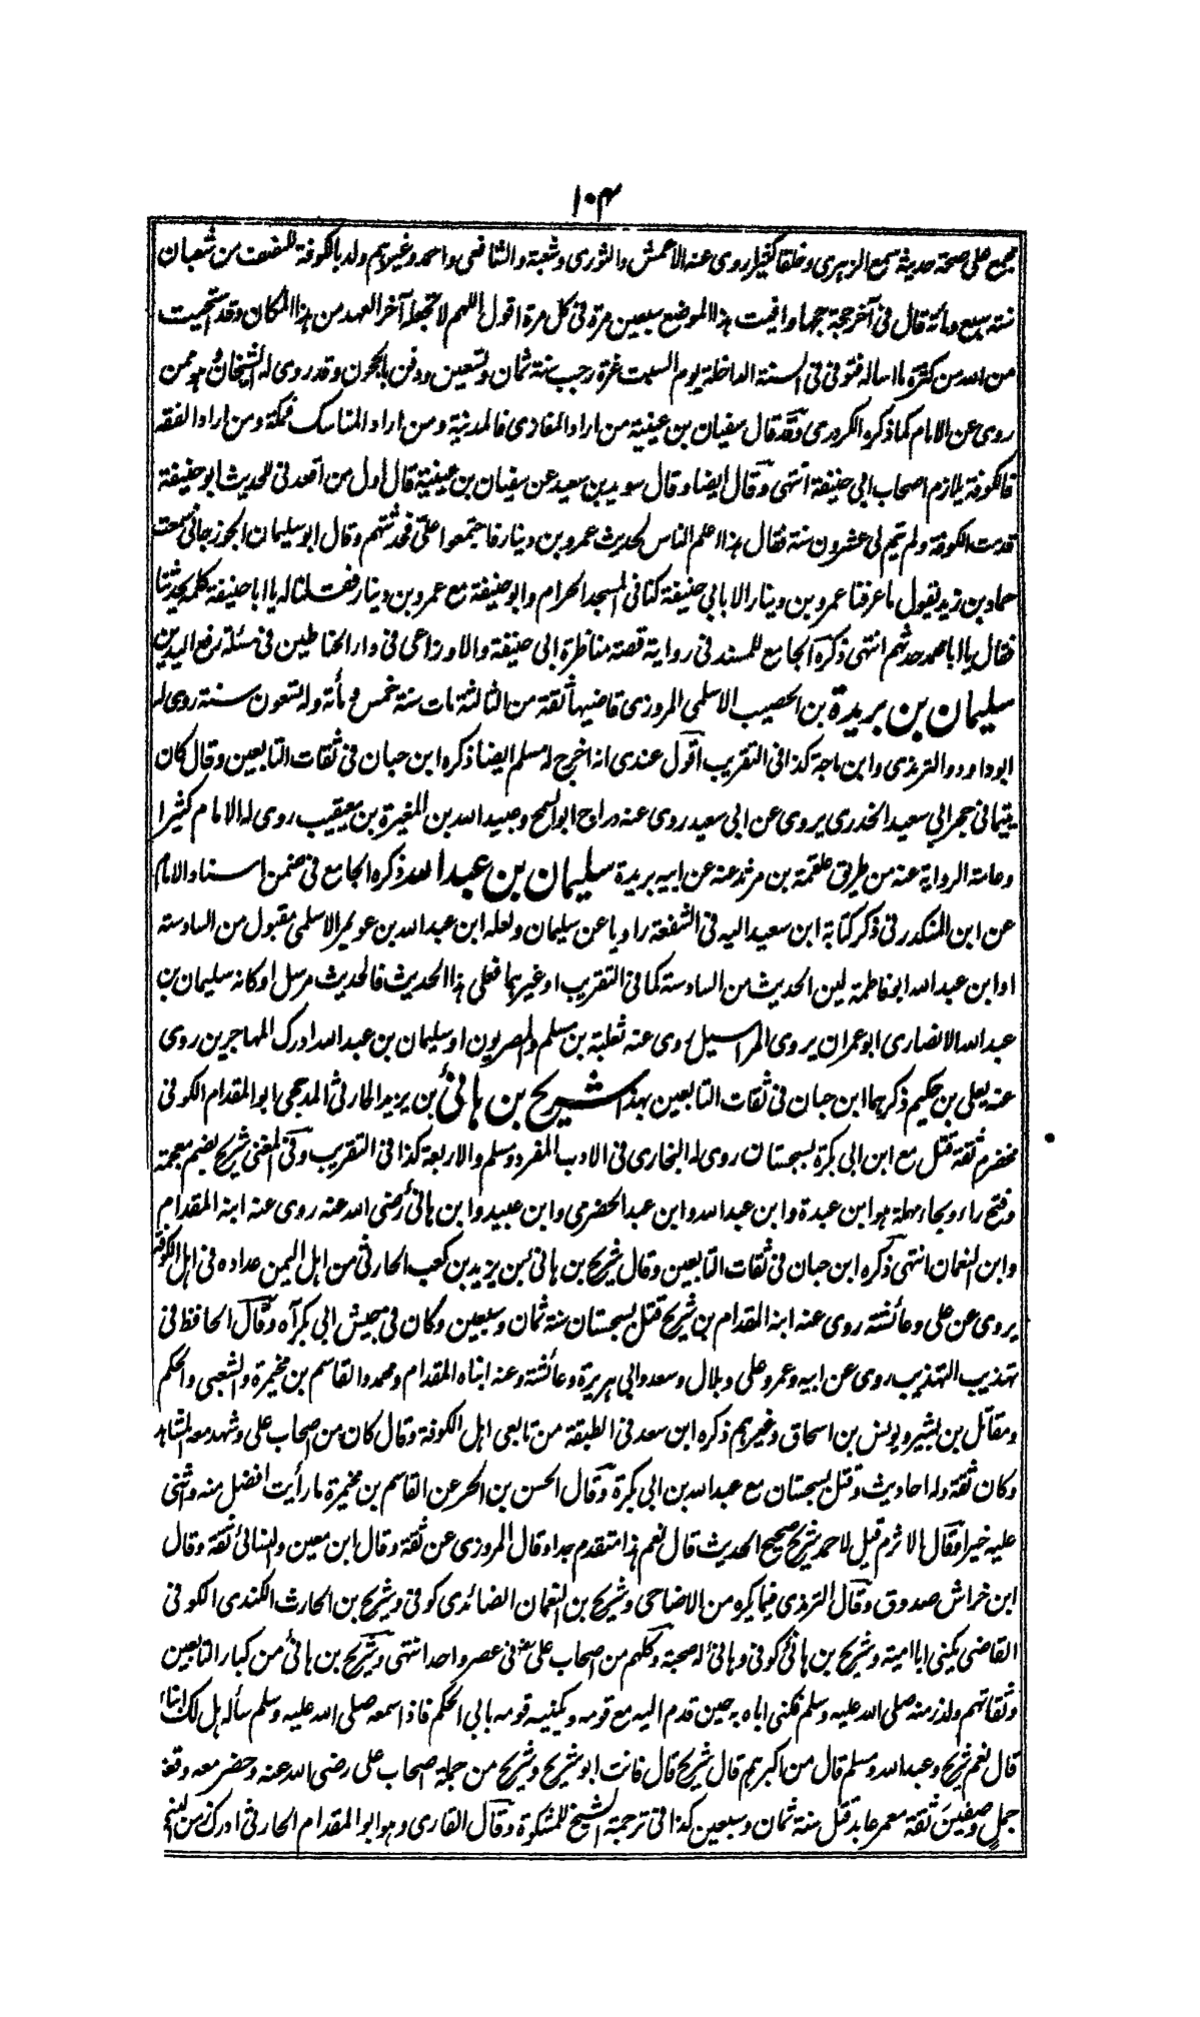 ۱۰۴
مجمع على صحة حديثه سمع الزهرى وخلقا كثيرا روى عنه الاعمش والثورى وشعبة والشافعى واحمد وغيرهم ولد بالكوفة للنصف من شعبان
سنة سبع ومائة قال فى آخر حجة حجها وافيت هذا الموضع سبعين مرة فى كل مرة اقول اللهم لا تجعله آخر العهد من هذا المكان وقد استحييت
من الله من كثرة ما اساله فتوفى فى السنة الداخلة يوم السبت غرة رجب سنة ثمان وتسعين ودفن بالحجون وقد روى له الشيخان وهو ممن
روى عن الامام كما ذكره الكردرى وقد قال سفيان بن عيينة من اراد المغازى فالمدينة ومن اراد المناسك فمكة ومن اراد الفقه
فالكوفة يلازم اصحاب ابى حنيفة انتهى وقال ايضا وقال سويد بن سعيد عن سفيان بن عيينة قال اول من اقعدنى للحديث ابو حنيفة
قدمت الكوفة ولم يتم لى عشرون سنة فقال هذا اعلم الناس لحديث عمرو بن دينار فاجتمعوا على فحدثتهم وقال ابو سليمان الجوزجانى سمعت
حماد بن زيد يقول ما عرفنا عمرو بن دينار الا بابى حنيفة كنا فى المسجد الحرام وابو حنيفة مع عمرو بن دينار فقلنا له يا ابا حنيفة كلمه يحدثنا
فقال يا ابا محمد حدثهم انتهى ذكره الجامع للمسند فى رواية قصة مناظرة ابى حنيفة والاوزاعى فى دار الحناطين فى مسئلة رفع اليدين
سليمان بن بريدة بن الحصيب الاسلمى المروزى قاضيها ثقة من الثالثة مات سنة خمس ومائة وله تسعون سنة روى له
ابو داود والترمذى وابن ماجة كذا فى التقريب اقول عندى انه اخرج له مسلم ايضا ذكره ابن حبان فى ثقات التابعين وقال كان
يتيما فى حجر ابى سعيد الخدرى يروى عن ابى سعيد روى عنه دراج ابو السمح وعبيد الله بن المغيرة بن معيقيب روى له الامام كثيرا
وعامة الرواية عنه من طريق علقمة بن مرثد عنه عن ابيه بريدة سليمان بن عبد الله ذكره الجامع فى ضمن اسناد الامام
عن ابن المنكدر فى ذكر كتابة ابن سعيد اليه فى الشفعة راويا عن سليمان ولعله ابن عبد الله بن عويمر الاسلمى مقبول من السادسة
او ابن عبد الله ابو فاطمة لين الحديث من السادسة كما فى التقريب او غيرهما فعلى هذا الحديث فالحديث مرسل او كانه سليمان بن
عبد الله الانصارى ابو عمران يروى المراسيل روى عنه ثعلبة بن مسلم والمصريون او سليمان بن عبد الله ادرك المهاجرين روى
عنه يعلى بن حكيم ذكرهما ابن حبان فى ثقات التابعين بهذا شريح بن هانئ بن يزيد الحارثى المذحجى ابو المقدام الكوفى
مخضرم ثقة قتل مع ابن ابى بكرة بسجستان روى له البخارى فى الادب المفرد ومسلم والاربعة كذا فى التقريب وفى المغنى شريح بضم معجمة
وفتح راء وبحاء مهملة هو ابن عبدة وابن عبد الله وابن عبد الحضرمى وابن عبيد وابن هانئ رضى الله عنه روى عنه ابنه المقدام
وابن النعمان انتهى ذكره ابن حبان فى ثقات التابعين وقال شريح بن هانئ بن يزيد بن كعب الحارثى من اهل اليمن عداده فى اهل الكوفة
يروى عن على وعائشة روى عنه ابنه المقدام بن شريح قتل بسجستان سنة ثمان وسبعين وكان فى جيش ابى بكرة آه وقال الحافظ فى
تهذيب التهذيب روى عن ابيه وعمر وعلى وبلال وسعد وابى هريرة وعائشة وعنه ابناه المقدام ومحمد والقاسم بن مخيمرة والشعبى والحكم
ومقاتل بن بشير ويونس بن اسحاق وغيرهم ذكره ابن سعد فى الطبقة من تابعى اهل الكوفة وقال كان من اصحاب على وشهد معه المشاهد
وكان ثقة وله احاديث وقتل بسجستان مع عبد الله بن ابى بكرة وقال الحسن بن الحر عن القاسم بن مخيمرة ما رأيت افضل منه واثنى
عليه خيرا وقال الاثرم قيل لاحمد شريح صحيح الحديث قال نعم هذا متقدم جدا وقال المروزى عن ثقة وقال ابن معين والنسائى ثقة وقال
ابن خراش صدوق وقال الترمذى فيما يكره من الاضاحى وشريح بن النعمان الصائدى كوفى وشريح بن الحارث الكندى الكوفى
القاضى يكنى ابا امية وشريح بن هانئ كوفى وهانئ له صحبة وكلهم من اصحاب على فى عصر واحد انتهى وشريح بن هانئ من كبار التابعين
وثقاتهم ولد زمنه صلى الله عليه وسلم فكنى اباه به حين قدم اليه مع قومه ويكنيه قومه بابى الحكم فاذ اسمعه صلى الله عليه وسلم سأله هل لك ابناء
قال نعم شريح وعبد الله ومسلم قال من اكبرهم قال شريح قال فانت ابو شريح وشريح من جملة اصحاب على رضى الله عنه وحضر معه وقعة
جمل وصفين ثقة معمر عابد قتل سنة ثمان وسبعين كذا فى ترجمة الشيخ للمشكوة وقال القارى وهو ابو المقدام الحارثى ادرك زمن النبى